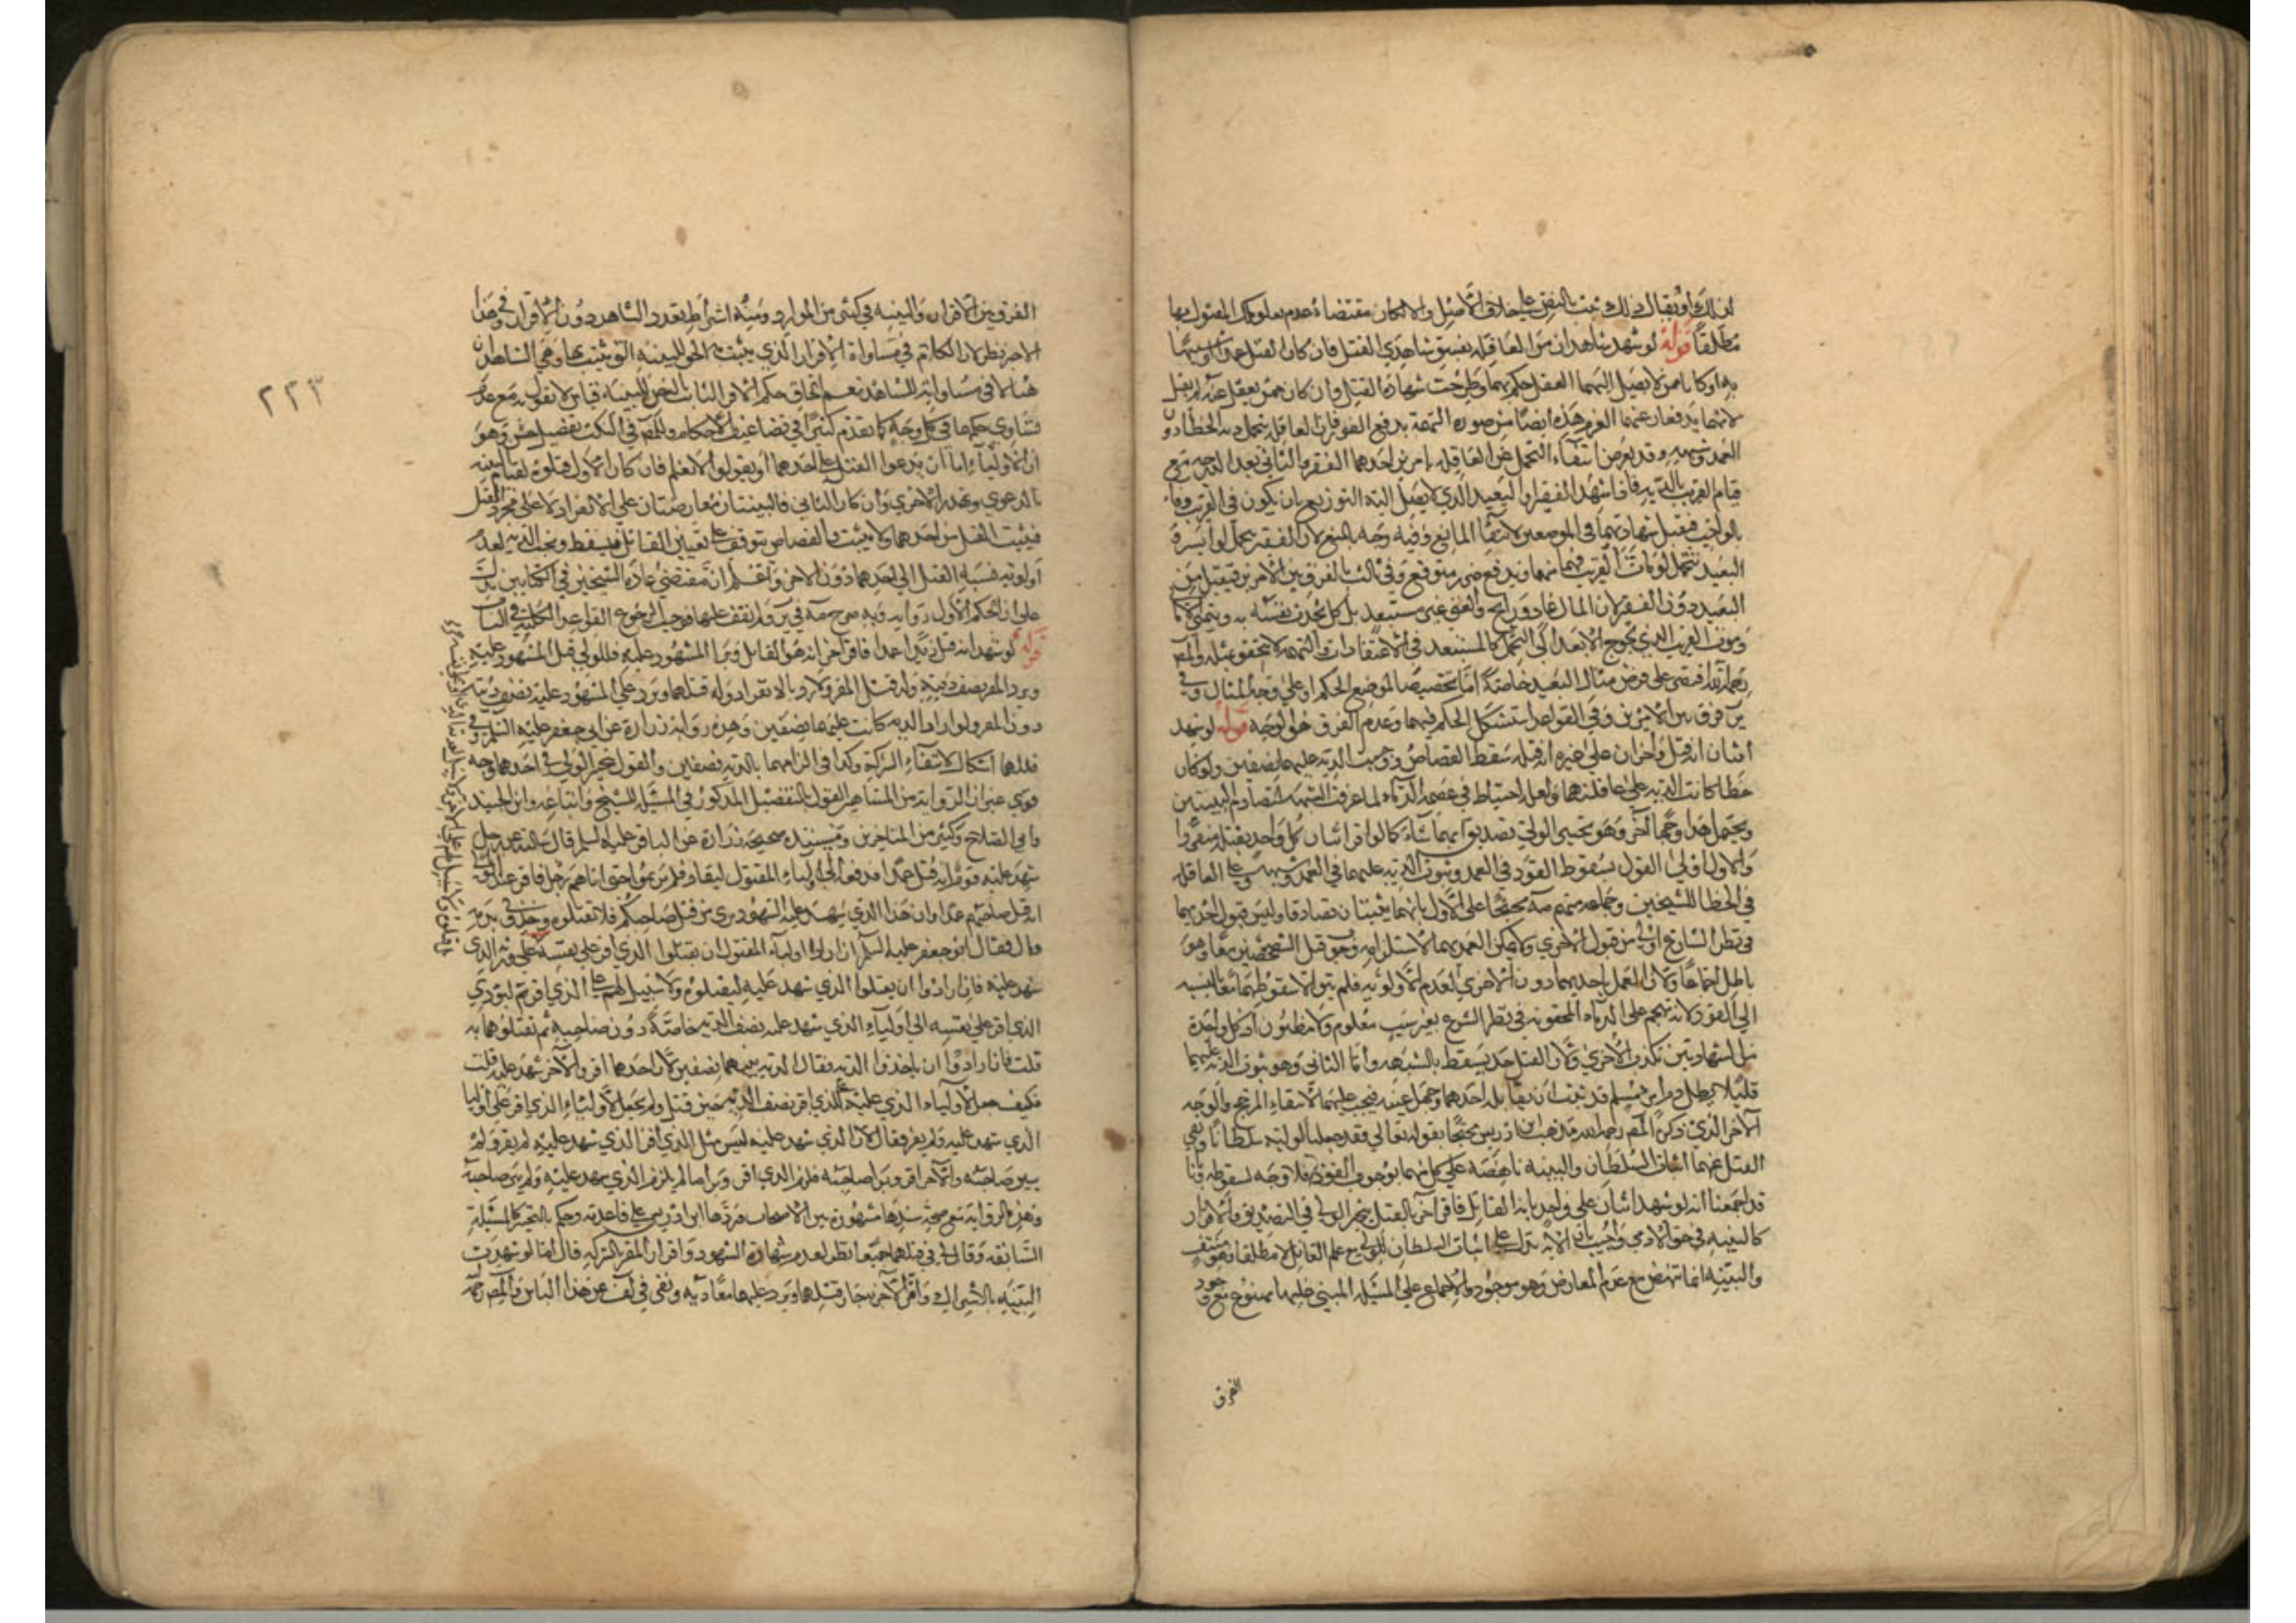 لذلك او يقال ذلك ثبت بالنص على خلاف الاصل والا لكان مقتضاه عدم مملوكية المقتول بها
مطلقا قوله لو شهد شاهدان من العاقلة بفسق شاهدي القتل فان كان القتل عمدا او شبيها
به او كانا ممن لا يصل اليهما العقل حكم بهما وطرحت شهادة القتل وان كان ممن يعقل عنه لم يقبل
لانهما يدفعان عنهما الغرم هذه ايضا من صورة التهمة بدفع الغرم فان العاقلة يتحمل دية الخطا دون
العمد وشبهه وقد يعرض انتفاء التحمل عن العاقلة بامرين احدهما الفقر والثاني بعد الدرجة مع
قيام القريب بالدية فاذا شهد الفقير او البعيد الذي لا يصل اليه التوزيع بان يكون في القريب وفاء
بالواجب فتقبل شهادتهما في الموضعين لانتفاء المانع وفيه وجه بالمنع لان الفقير يحمل لو ايسر و
البعيد يتحمل لو مات القريب فهما متهمان بدفع ضرر متوقع وفي ثالث بالفرق بين الامرين فيقبل من
البعيد دون الفقير لان المال غاد ورايح والغنى غير مستبعد بل كل يحدث نفسه به ويتمناه
وموت القريب الذي يحوج الابعد الى التحمل كالمستبعد في الاعتقادات والتهمة لا تتحقق بمثله والمص
رحمه الله اقتصر على فرض مثال البعيد خاصة اما تخصيصا لموضع الحكم او على وجه المثال وفي
ير فرق بين الامرين وفي القواعد استشكل الحكم فيهما وعدم الفرق هو الوجه قوله لو شهد
اثنان انه قتل واخران على غيره انه قتله سقط القصاص ووجبت الدية عليهما نصفين ولو كان
خطا كانت الدية على عاقلتهما ولعله احتياط في عصمة الدماء لما عرض من الشبهة بتصادم البينتين
ويحتمل هذا وجها آخر وهو تخيير الولي تصديق ايهما شاء كما لو اقر اثنان كل واحد بقتله منفردا
والاول اولى القول بسقوط القود في العمد وثبوت الدية عليهما في العمد وشبهه وعلى العاقلة
في الخطا للشيخين وجماعة منهم محتجا على الاول بانهما بينتان تصادقا وليس قبول احديهما
في نظر الشارع اولى من قبول الاخرى ولا يمكن العمل بهما لاستلزامه وجوب قتل الشخصين معا وهو
باطل اجماعا ولا العمل باحديهما دون الاخرى لعدم الاولوية فلم يبق الا سقوطهما معا بالنسبة
الى القود ولانه تهجم على الدماء المحقونة في نظر الشرع بغير سبب معلوم ولا مظنون اذ كل واحدة
من الشهادتين تكذب الاخرى ولان القتل حد يسقط بالشبهة واما الثاني وهو ثبوت الدية عليهما
فلئلا يطل دم امرئ مسلم قد ثبت ان قاتله احدهما وجهل عينه فيجب عليهما لانتفاء المرجح والوجه
الاخر الذي ذكره المص رحمه الله مذهب ابن ادريس محتجا بقوله تعالى فقد جعلنا لوليه سلطانا ونفي
القتل عنهما اثبات السلطان والبينة ناهضة على كل منهما بوجوب القود فلا وجه لسقوطه وبانا
قد اجمعنا انه لو شهد اثنان على واحد بانه القاتل فاقر آخر بالقتل يتخير الولي في التصديق والاقرار
كالبينة في حق الادمي واجيب بان الاية تدل على اثبات السلطان للولي مع علم القاتل لا مطلقا وهو منتف
والبينة انما تنهض مع عدم المعارض وهو موجود والاجماع على المسئلة المبني عليها ممنوع مع وجود
الفرق
الفرق بين الاقرار والبينة في كثير من الموارد ومنه اشتراط تعدد الشاهد دون الاقرار وفي هذا
الاخير نظر لان الكلام في مساواة الاقرار الذي يثبت به الحق للبينة التي يثبت بها وهي الشاهدان
هنا لا في مساواته للشاهد نعم الحاق حكم الاقرار الثابت بالنص للبينة قياس لا نقول به مع عدم
تساوي حكمهما في كل وجه كما تقدم كثيرا في تضاعيف الاحكام وللمص في النكت تفصيل حسن وهو
ان الاولياء اما ان يدعوا القتل على احدهما او يقولوا لا نعلم فان كان الاول قتلوه لقيام البينة
بالدعوى وتهدر الاخرى وان كان الثاني فالبينتان متعارضتان على الانفراد لا على مجرد القتل
فيثبت القتل من احدهما ولا يثبت والقصاص يتوقف على تعيين القاتل فيسقط وتجب الدية لعدم
اولوية نسبة القتل الى احدهما دون الاخر واعلم ان مقتضى عادة الشيخين في الكتابين يدل
على ان الحكم الاول رواية وبه صرح منه في ير ولم نقف عليها فوجب الرجوع الى القواعد الكلية في الباب
قوله لو شهدا انه قتل زيدا عمدا فاقر آخر انه هو القاتل وبرا المشهود عليه فللولي قتل المشهود عليه
ويرد المقر نصف ديته وله قتل المقر ولا رد بالانفراد وله قتلهما ويرد على المشهود عليه نصف ديته
دون المقر ولو اراد الدية كانت عليهما نصفين وهذه رواية زرارة عن ابي جعفر عليه السلم وفي
قتلهما اشكال لانتفاء الشركة وكذا في الزامهما بالدية نصفين والقول بتخيير الولي في احدهما وجه
قوي غير ان الرواية من المشاهير القول بالتفصيل المذكور في المسئلة للشيخ واتباعه وابن الجنيد
وابي الصلاح وكثير من المتاخرين ومستنده صحيحة زرارة عن الباقر عليه السلم قال سالته عن رجل
شهد عليه قوم انه قتل عمدا فدفعه الوالي الى اولياء المقتول ليقاد فلم يريموا حتى اتاهم رجل فاقر عند الوالي
انه قتل صاحبهم عمدا وان هذا الذي شهد عليه الشهود بريء من قتل صاحبكم فلا تقتلوه وخذوني بدمه
قال فقال ابو جعفر عليه السلم ان اراد اولياء المقتول ان يقتلوا الذي اقر على نفسه فليقتلوه
شهد عليه فان ارادوا ان يقتلوا الذي شهد عليه ليقتلوه ولا سبيل لهم على الذي اقر ثم ليؤدي
الذي اقر على نفسه الى اولياء الذي شهد عليه نصف الدية خاصة دون صاحبه ثم يقتلوهما به
قلت فان ارادوا ان ياخذوا الدية فقال الدية بينهما نصفين لان احدهما اقر والآخر شهد عليه قلت
فكيف جعل لاولياء الذي شهد عليه على الذي اقر نصف الدية حين قتل ولم يجعل لاولياء الذي اقر على اولياء
الذي شهد عليه ولم يقر فقال لان الذي شهد عليه ليس مثل الذي اقر الذي شهد عليه لم يقر ولم
يبرئ صاحبه والآخر اقر وبرا صاحبه فلزم الذي اقر وبرا ما لم يلزم الذي شهد عليه ولم يبرئ صاحبه
وهذه الرواية مع صحة سندها مشهورة بين الاصحاب فردها ابن ادريس على قاعدته وحكم بالتخيير كالمسئلة
السابقة وقال لي في قتلهما جميعا نظر لعدم شهادة الشهود واقرار المقر بالشركة قال اما لو شهدت
البينة بالاشتراك واقر الآخر به جاز قتلهما ويرد عليهما معا دية ونفى في لف عن هذا الباس والمص رحمه
٢٢٣